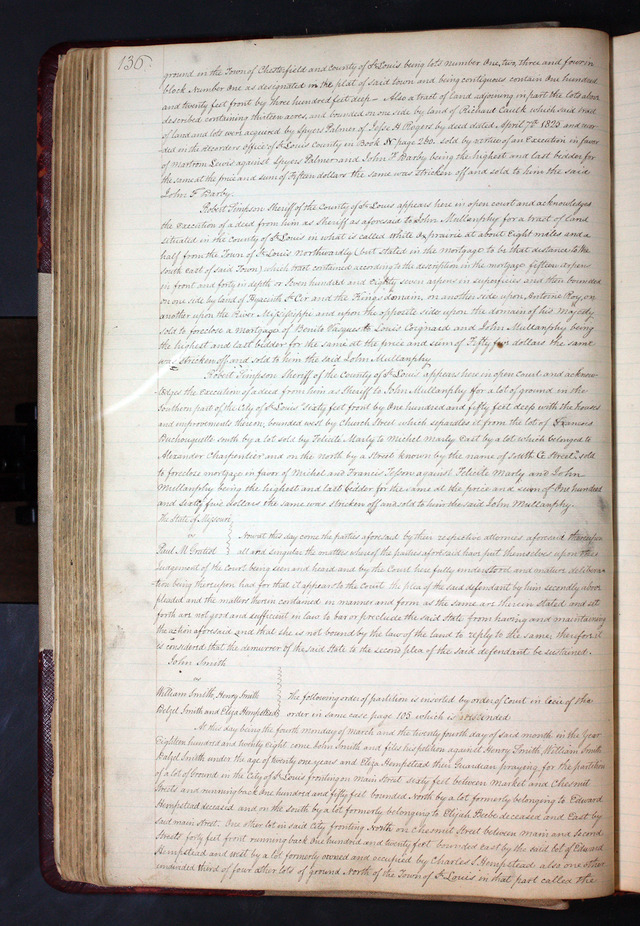 136.
ground in the Town of Chesterfield and county of St Louis being lots number One, two, three and four in
block Number One as designated in the plat of said town and being contiguous contain One hundred
and twenty feet front by three hundred feet deep – Also a tract of land adjoining in part the lots above
described containing thirteen acres, and bounded on one side by land of Richard Caulk which said tract
of land and lots were acquired by Spyers Palmer of Jesse H Rogers by deed dated April 7th 1825 and recor
ded in the recorders office of St Louis County in Book N page 260. sold by virtue of an Execution in favor
of Lewis against Spyers Palmer and John F Darby being the highest and last bidder for
the same at the price and sum of Fifteen dollars the same was stricken off and sold to him the said
John F Darby.
Robert Simpson Sheriff of the County of St Louis appears here in open court and acknowledges
the execution of a deed from him as Sheriff as aforesaid to John Mullanphy for a tract of land
situated in the County of St Louis in what is called white Ox prairie at about Eight miles and a
half from the Town of St Louis northwardly (but stated in the mortgage to be that distance to the
south east of said Town) which tract continued according to the description in the mortgage fifteen arpens
in front and forty in depth or Seven hundred and Eighty seven arpens in superficies and then bounded
on one side by land of Hyacinth St Cyr and the Kings domain, on another side upon Antoine Roy, on
another upon the River Mississippi and upon the opposite side upon the domain of his Majesty
sold to foreclose a mortgage of Benito Vasques to Louis Coignard and John Mullanphy being
the highest and last bidder for the same at the price and sum of Fifty four dollars the same
was stricken off and sold to him the said John Mullanphy
Robert Simpson Sheriff of the County of St Louis appears here in open court and acknow
ledges the execution of a deed from him as Sheriff to John Mullanphy for a lot of ground in the
Southern part of the City of St Louis Sixty feet front by One hundred and fifty feet deep with the houses
and improvements thereon; bounded west by Church Street which separates it from the lot of
south by a lot sold by Felicite Marly to Michel Marly East by a lot which belonged to
Alexander Charpentier and on the north by a Street known by the name of South Ce Street, sold
to foreclose mortgage in favor of Michel and Francis Tesson against Felicite Marly and John
Mullanphy being the highest and last bidder for the same at the price and sum of One hundred
and sixty five dollars the same was stricken off and sold to him the said John Mullanphy.
The State of Missouri
vs
Now at this day come the parties aforesaid by their respective attornies aforesaid thereupon
Paul M Gratiot all and singular the matters whereof the parties aforesaid have put themselves upon the
Judgement of the Court being seen and heard and by the Court here fully understood and mature delibera
tion being thereupon had for that it appears to the Court the plea of the said defendant by him secondly above
pleaded and the matters therein contained in manner and form as the same are therein stated and set
forth are not good and sufficient in law to bar or preclude the said State from having and maintaining
the action aforesaid and that she is not bound by the law of the land to reply to the same, therefore it
is considered that the demurrer of the said State to the second plea of the said defendant be sustained.
John Smith
vs
William Smith, Henry Smith The following order of partition is inserted by order of Court in lieu of the
Delzel Smith and Eliza Hempstead order in same case page 105 which is rescinded
At this day being the fourth monday of march and the twenty fourth day of said month in the Year
Eighteen hundred and twenty eight come John Smith and files his petition against Henry Smith, William Smith
Delzel Smith under the age of twenty one years and Eliza Hempstead their Guardian praying for the partition
of a lot of Ground in the City of St Louis fronting on main Street sixty feet between Market and Chesnut
Streets and running back one hundred and fifty feet bounded North by a lot formerly belonging to Edward
Hempstead deceased and on the south by a lot formerly belonging to Elijah Beebe deceased and East by
said main Street. One other lot in said City fronting North on Chesnut Street between main and Second
Streets forty feet front running back One hundred and twenty feet bounded east by the said lot of Edward
Hempstead and west by a lot formerly owned and occupied by Charles S Hempstead also one other
undivided third of four other lots of ground North of the Town of St Louis in that part called the